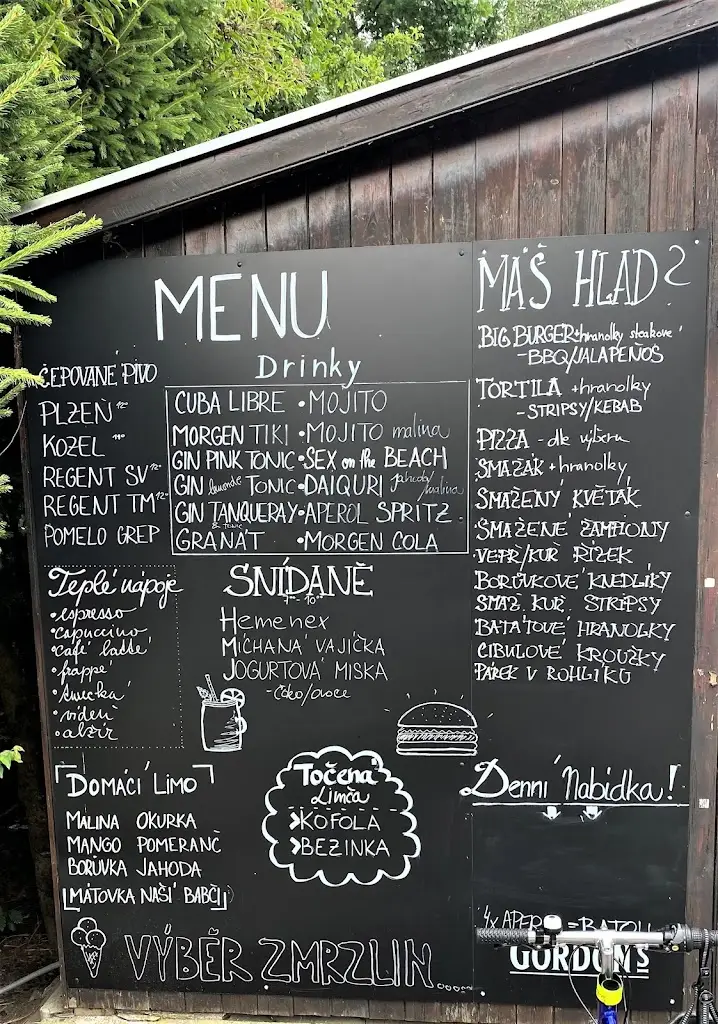 MENU
ČEPOVANÉ PIVO
PLZEŇ 12°
KOZEL 11°
REGENT SV 12°
REGENT TM 12°
POMELO GREP
Drinky
CUBA LIBRE • MOJITO
MORGEN TIKI • MOJITO malina
GIN PINK TONIC • SEX on the BEACH
GIN TONIC • DAIQURI jahody/malina
GIN TANQUERAY & tonic • APEROL SPRITZ
GRANÁT • MORGEN COLA
Teplé nápoje
• espresso
• capuccino
• café latté
• frappé
• turecká
• vídeň
• alžír
SNÍDANĚ
7 - 10
Hemenex
MÍCHANÁ VAJÍČKA
JOGURTOVÁ MISKA
- čoko/ovoce
DOMÁCÍ LIMO
MALINA OKURKA
MANGO POMERANČ
BORŮVKA JAHODA
MÁTOVKA NAŠÍ BABČI
Točená
Limča
KOFOLA
BEZINKA
VÝBĚR ZMRZLIN....
MÁŠ HLAD?
BIG BURGER + hranolky steakové
- BBQ/JALAPEÑOS
TORTILA + hranolky
- STRIPSY/KEBAB
PIZZA - dle výběru
SMAŽÁK + hranolky
SMAŽENÝ KVĚTÁK
SMAŽENÉ ŽAMPIONY
VEPŘ/KUŘ ŘÍZEK
BORŮVKOVÉ KNEDLÍKY
SMAŽ. KUŘ. STRIPSY
BATÁTOVÉ HRANOLKY
CIBULOVÉ KROUŽKY
PÁREK V ROHLÍKU
Denní Nabídka!
4x = BATOH
GORDON'S